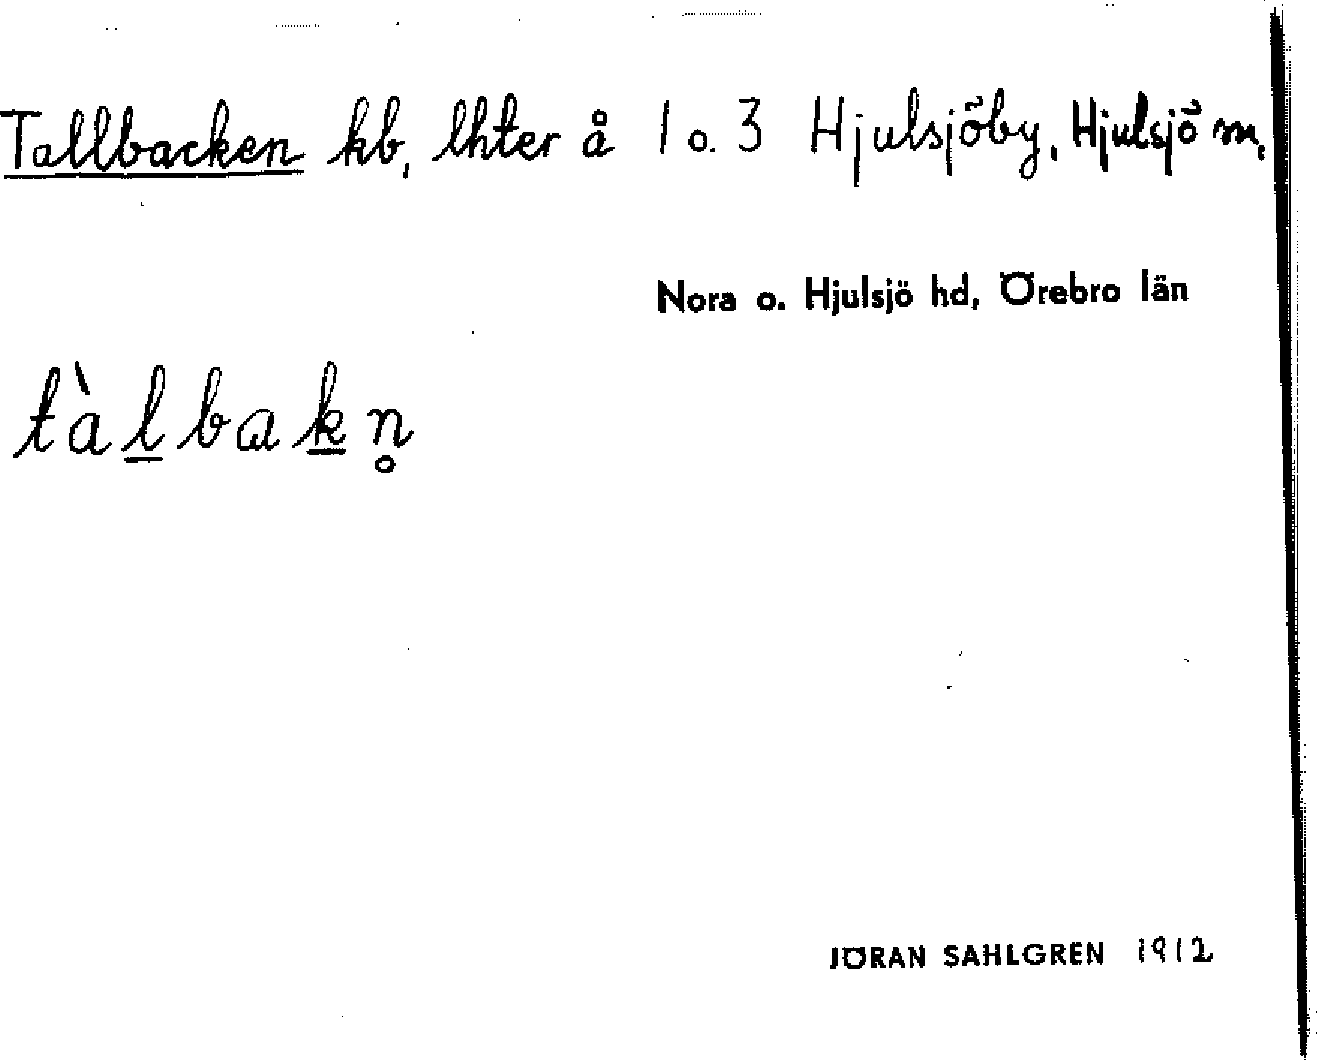 Tallbacken kb, lhter å 1 o. 3 Hjulsjöby, Hjulsjö sn,
Nora o. Hjulsjö hd, Örebro län
tàl̲bak̲n̥
JÖRAN SAHLGREN 1912